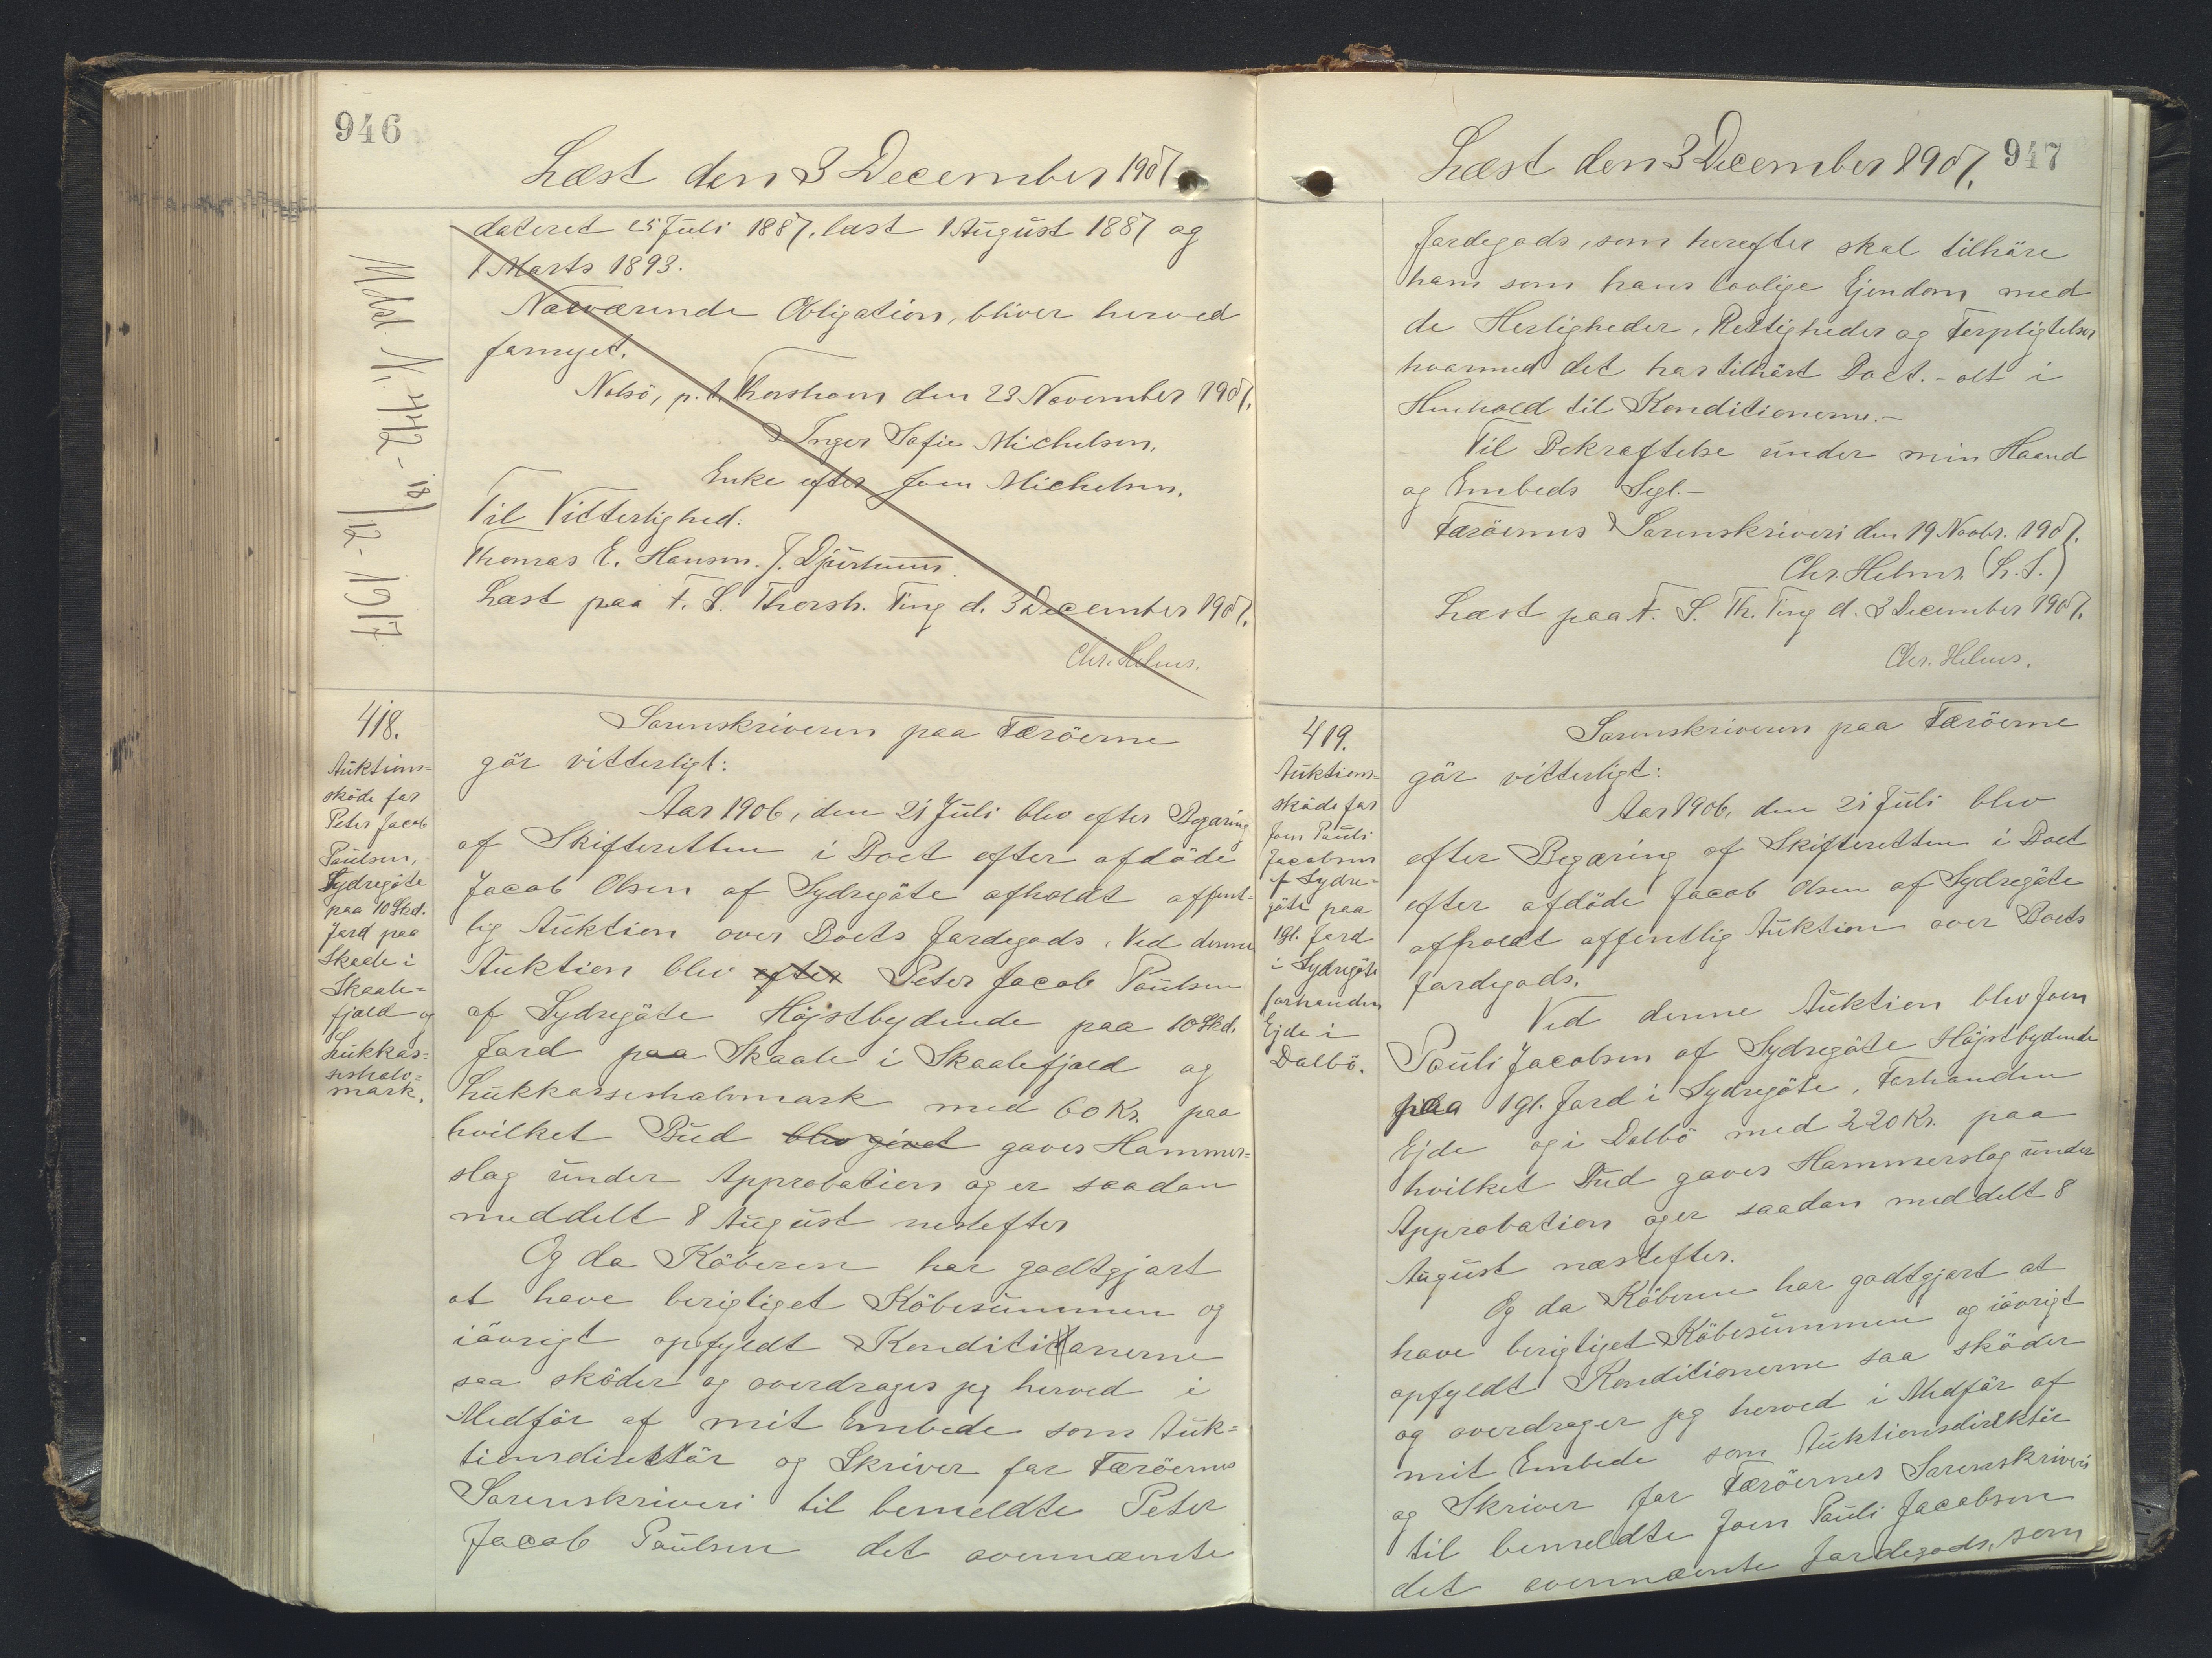 946
Læst den 3 December 1907
dateret 25 Juli 1887, læst 1 August 1887 og
1 Marts 1893.
Nærværende Obligation, bliver herved
fornyet.
Nolsö, p.t. Thorshavn den 23 November 1907.
Inger Sofie Michelsen,
Enke efter Joen Michelsen.
Til Vitterlighed:
Thomas E. Hansen. J. Djurhuus.
Læst paa F. S. Thorsh. Ting d. 3 December 1907.
Chr. Helms.
Udsl. 18/12-1917
418.
Auktions=
sköde for
Peter Jacob
Paulsen,
Sydregöte
paa 10 Skd.
Jord paa
Skaale i
Skaale=
fjæld og
Lukkas=
seshalv=
mark.
Sorenskriveren paa Færöerne
gör vitterligt:
Aar 1906, den 21 Juli blev efter Begæring
af Skifteretten i Boet efter afdöde
Jacob Olsen af Sydregöte afholdt offent=
lig Auktion over Boets Jordegods. Ved denne
Auktion blev efter Peter Jacob Paulsen
af Sydregöte Höjstbydende paa 10 Skd.
Jord paa Skaale i Skaalefjæld og
Lukkasseshalvmark med 60 Kr. paa
hvilket Bud blev givet gaves Hammer=
slag under Approbation og er saadan
meddelt 8 August nestefter
Og da Köberen har godtgjort
at have berigtiget Köbesummen og
iövrigt opfyldt Konditionerne
saa sköder og overdrages jeg herved i
Medför af mit Embede som Auk=
tionsdirektör og Skriver for Færöernes
Sorenskriveri til bemeldte Peter
Jacob Paulsen det ovennævnte
947
Læst den 3 December 1907.
Jordegods, som herefter skal tilhöre
ham som hans lovlige Ejendom med
de Herligheder, Rettigheder og Forpligtelser
hvormed det har tilhört Boet. - alt i
Henhold til Konditionerne.-
Til Bekræftelse under min Haand
og Embeds Segl.-
Færöernes Sorenskriveri den 19 Novbr. 1907.
Chr. Helms. (L.S.)
Læst paa F. S. Th. Ting d. 3 December 1907.
Chr. Helms.
419.
Auktions=
sköde for
Joen Pauli
Jacobsen
af Sydre=
göte paa
1 gl. Jord
i Sydregöte
forhanden
Ejde i
Dalbö.
Sorenskriveren paa Færöerne
gör vitterligt:
Aar 1906, den 21 Juli blev
efter Begæring af Skifteretten i Boet
efter afdöde Jacob Olsen af Sydregöte
afholdt offentlig Auktion over Boets
Jordegods.
Ved denne Auktion blev Joen
Pauli Jacobsen af Sydregöte Höjstbydende
paa 1 gl. Jord i Sydregöte, Forhanden
Ejde og i Dalbö med 220 Kr. paa
hvilket Bud gaves Hammerslag under
Approbation og er saadan meddelt 8
August næstefter.
Og da Köberen har godtgjort at
have berigtiget Köbesummen og iövrigt
opfyldt Konditionerne saa sköder
og overdrager jeg herved i Medför af
mit Embede som Auktionsdirektör
og Skriver for Færöernes Sorenskriveri
til bemeldte Joen Pauli Jacobsen
det ovennævnte Jordegods, som